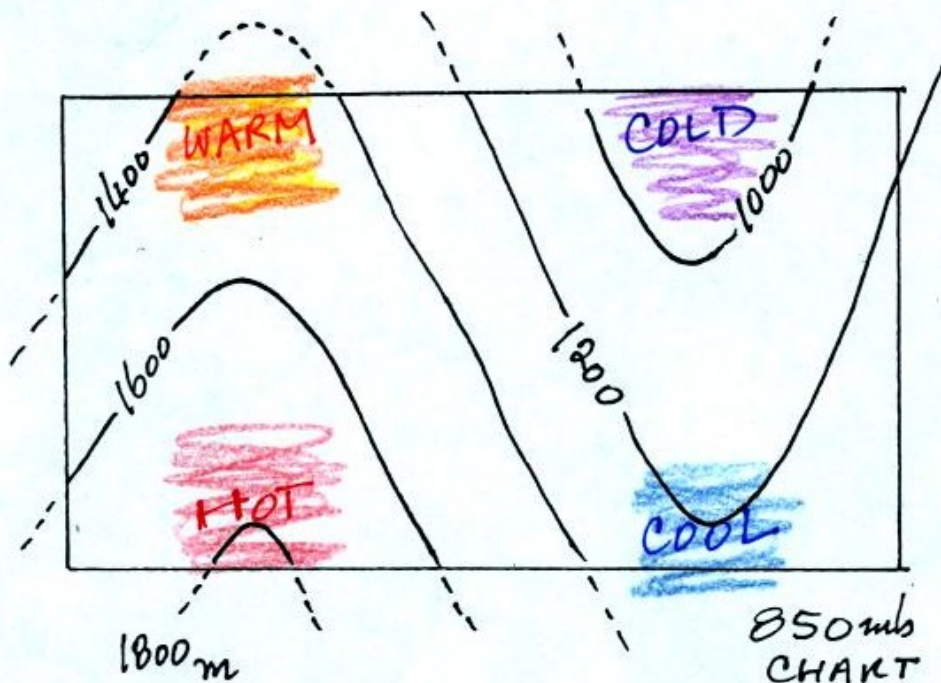 WARM
COLD
1400
1000
1600
1200
HOT
COOL
1800m
850mb
CHART